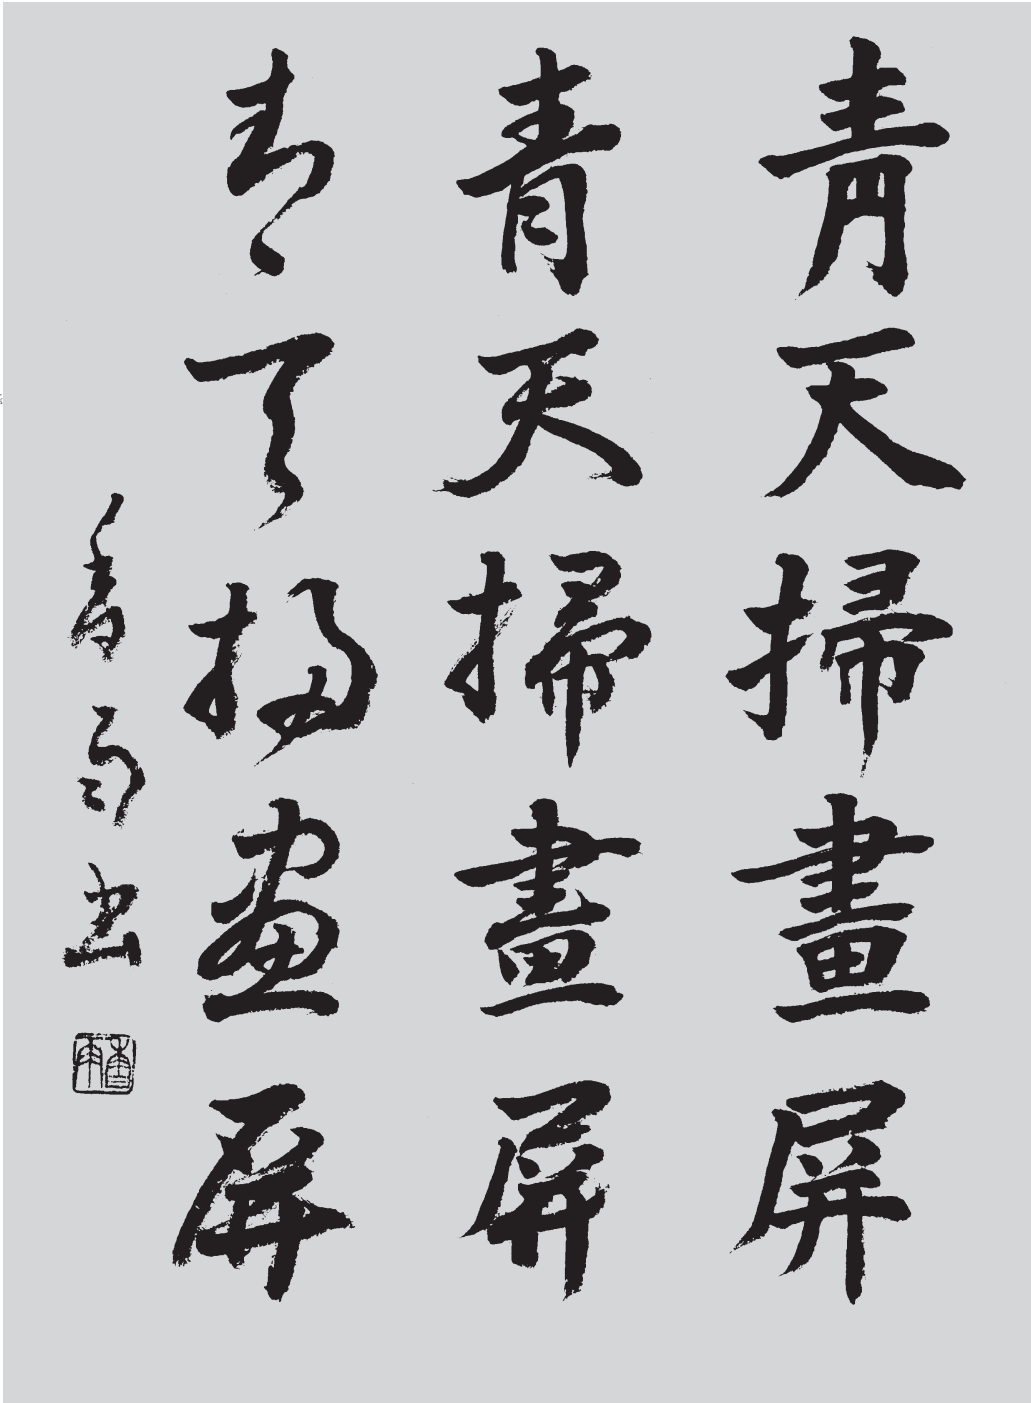 青天掃畫屏
青天掃畫屏
青天掃畫屏
香雨書
香雨